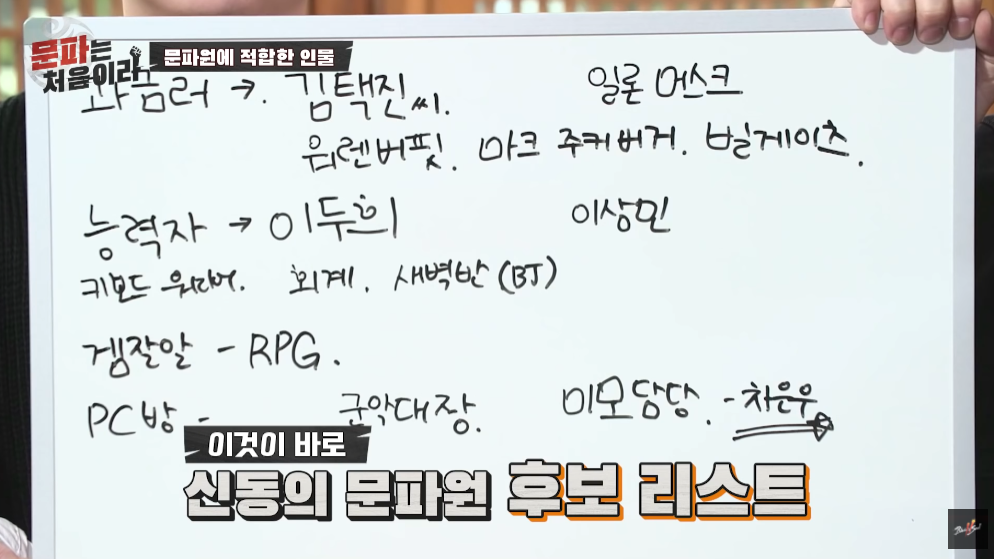 문파는
처음이라
문파원에 적합한 인물
과금러 → . 김택진씨. 일론 머스크
워렌버핏. 마크 주커버거. 빌게이츠.
능력자 → 이두희 이상민
키보드 워리어. 회계. 새벽반 (BJ)
겜잘알 - RPG.
PC방 - 군악대장. 미모담당. - 차은우
이것이 바로
신동의 문파원 후보 리스트